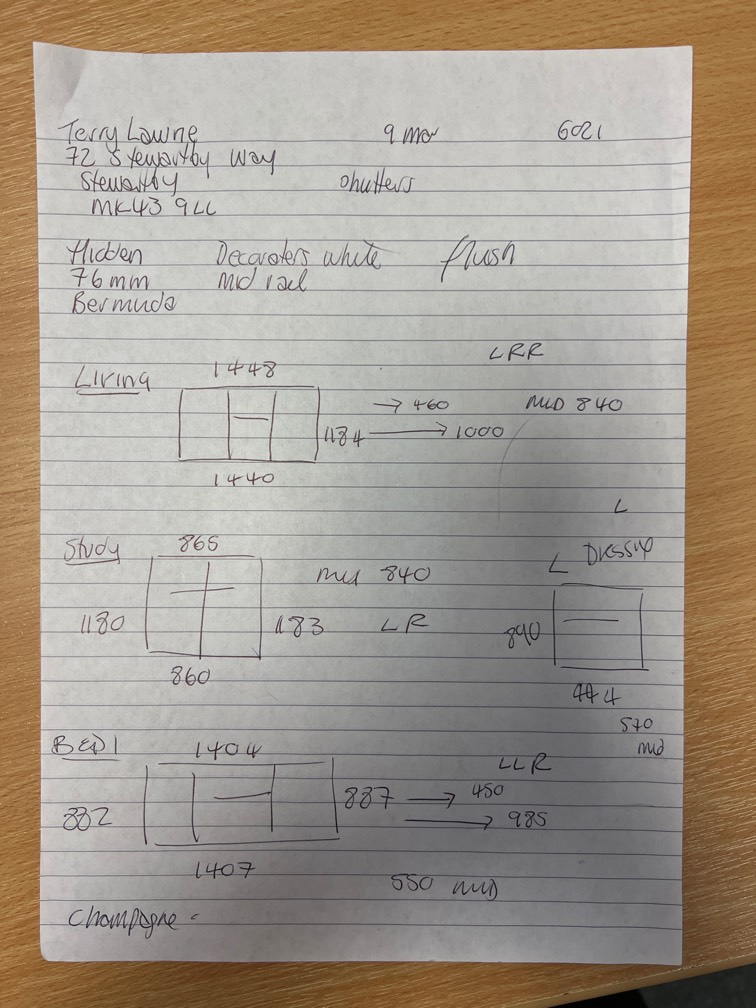 Terry Lawne 9 Mar 6021
72 Stewartby Way
Stewartby shutters
MK43 9LL
Hidden Decorators white flush
76mm Mid rail
Bermuda
LRR
Living 1448
→ 460 MID 840
1184 → 1000
1440
L
Study 865 L Dressing
mid 840
1180 1183 LR 890
860 444
570
mid
BED 1 1404 LLR
882 887 → 450
→ 985
1407
550 MID
Champagne -